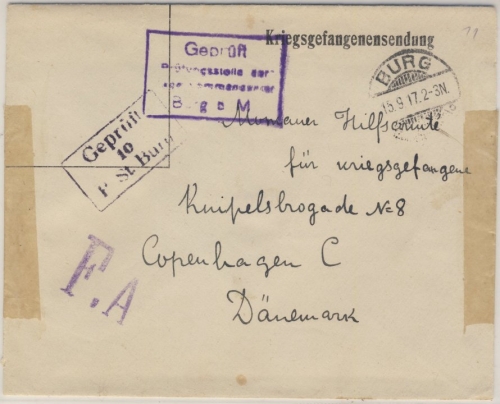 Kriegsgefangenensendung
11
Geprüft
Prüfungsstelle der
Burg b M
BURG
15.9.17.2-3N.
Geprüft
10
P. St. Burg
Hilfscomite
für Kriegsgefangene
Knipelsbrogade No 8
Copenhagen C
Dänemark
F.A